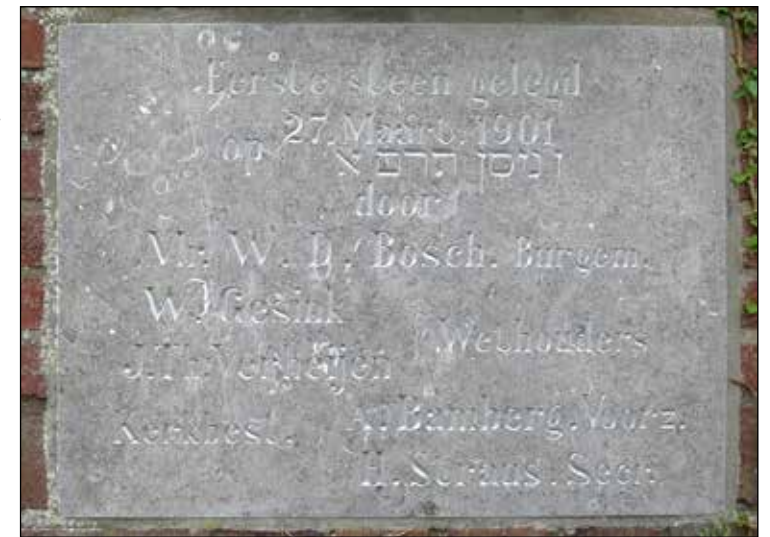 Eerste steen gelegd
op 27. Maart. 1901
ז ניסן תרס א
door
Mr. W. D. Bosch. Burgem.
W. Giesink
J. Th. Verheijen Wethouders
Kerkbest. A. Bamberg. Voorz.
H. Straus. Secr.